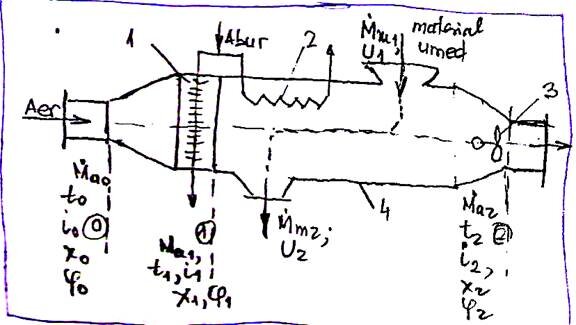 1
Abur
2
Ṁm1,
U1
material
umed
3
Aer
Ṁa0
t0
i0
x0
φ0
0
Ṁa1,
t1, i1
x1, φ1
1
Ṁm2;
U2
4
Ṁa2
t2
i2,
x2
φ2
2